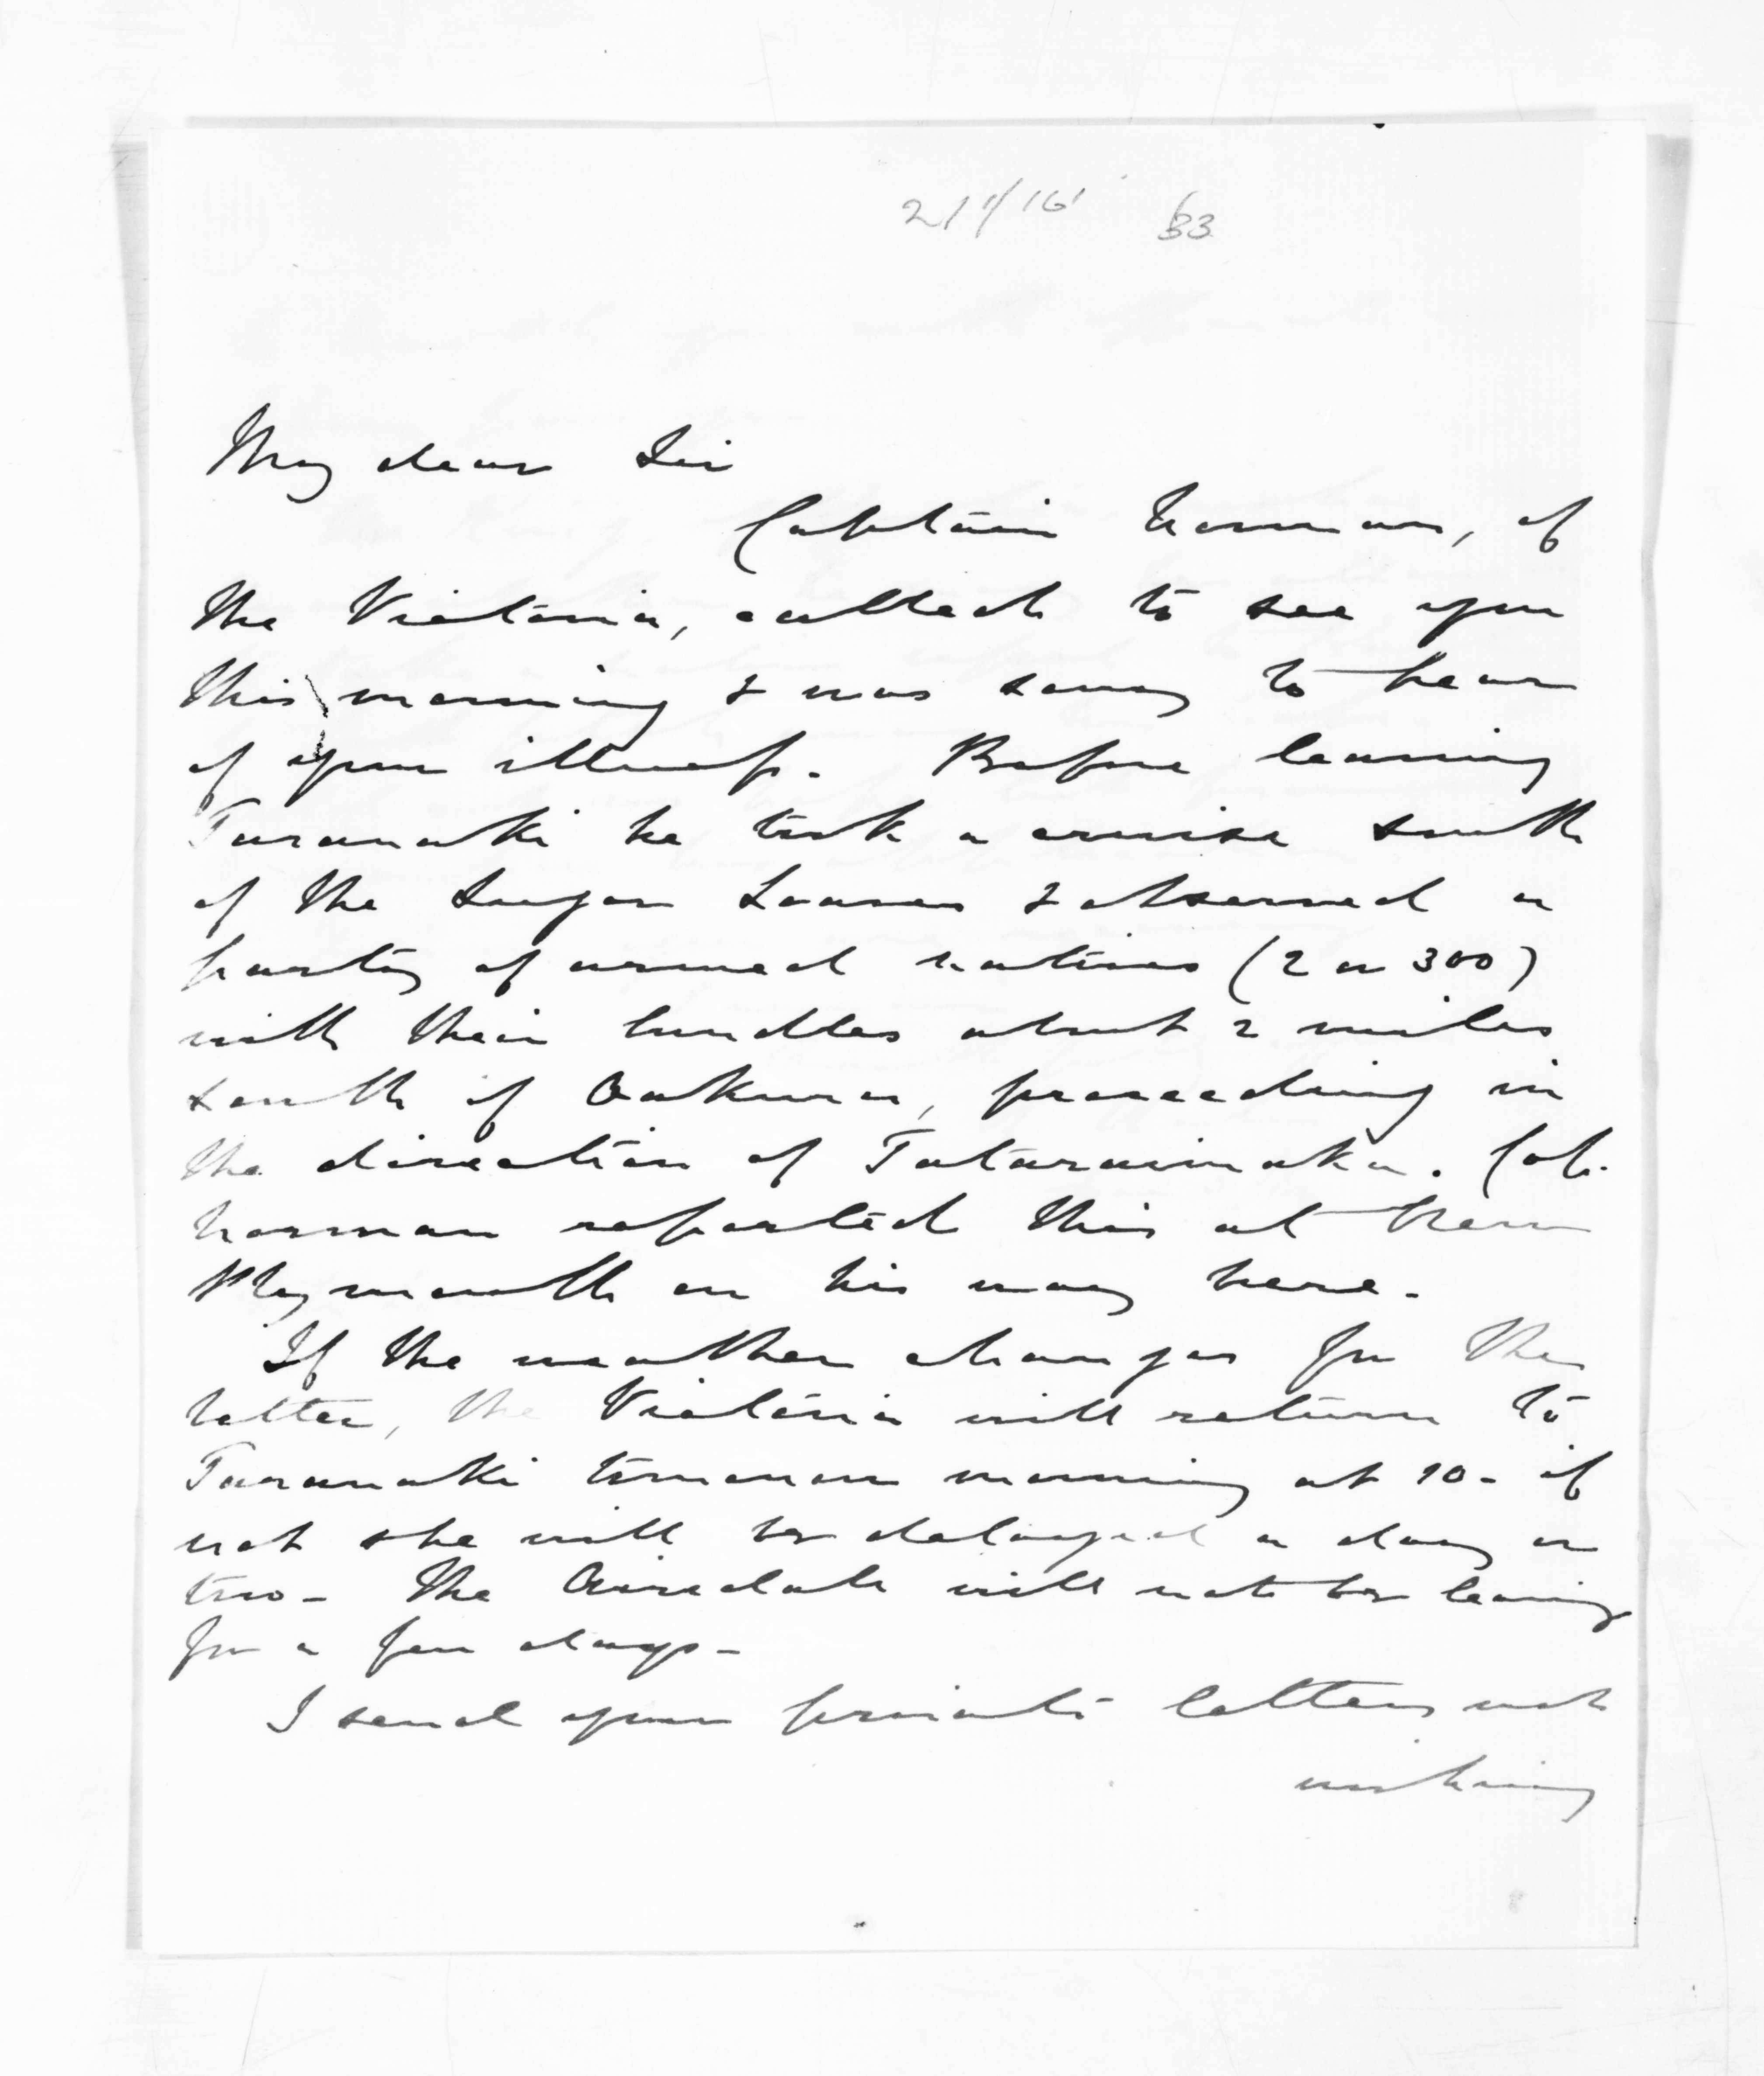 33
My dear Sir
Captain Norman, of
the Victoria, called to see you
this morning & was sorry to hear
of your illness. Before leaving
Taranaki he took a cruise south
of the Sugar Loaves & observed a
party of armed natives (2 or 300)
with their bundles about 2 miles
south of Oakura, proceeding in
the direction of Tataraimaka. Capt.
Norman reported this at New
Plymouth on his way here.
If the weather changes for the
better, the Victoria will return to
Taranaki tomorrow morning at 10 - if
not she will be delayed a day or
two - The Airedale will not be leaving
for a few days -
I send your private letters not
wishing